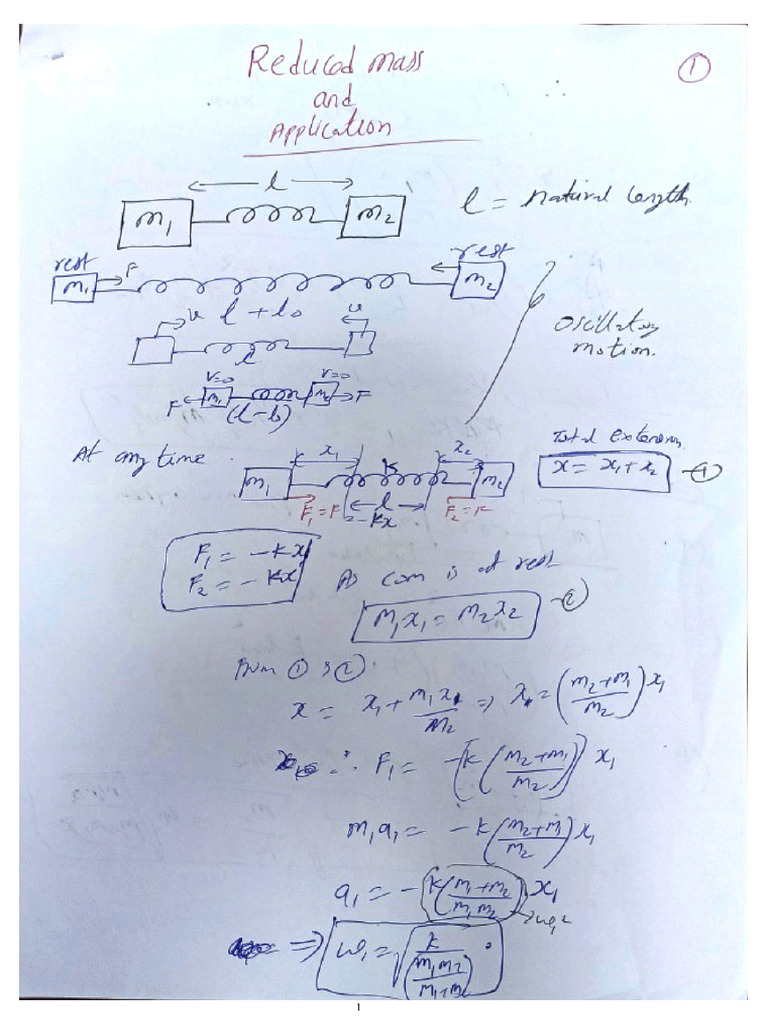 Reduced mass
①
and
Application
l
m₁ m₂
l = natural length.
rest rest
m₁ F m₂
u l + l₀ u
l
Oscillatory
motion.
v=0 v=0
F m₁ F
At any time
x₁ k x₂
m₁ l m₂
F₁ = F F₂ = F
= -kx
Total extension
x = x₁ + x₂ -①
F₁ = -kx
F₂ = -kx
As com is at rest
m₁x₁ = m₂x₂ -②
From ① & ②
x = x₁ + m₁x₁/m₂ ⇒ x = ((m₂+m₁)/m₂) x₁
∴ F₁ = -(k((m₂+m₁)/m₂)) x₁
m₁a₁ = -k((m₂+m₁)/m₂) x₁
a₁ = -k((m₁+m₂)/(m₁m₂)) x₁
→ω₁²
⇒ ω₁ = √(k/((m₁m₂)/(m₁+m₂)))
1